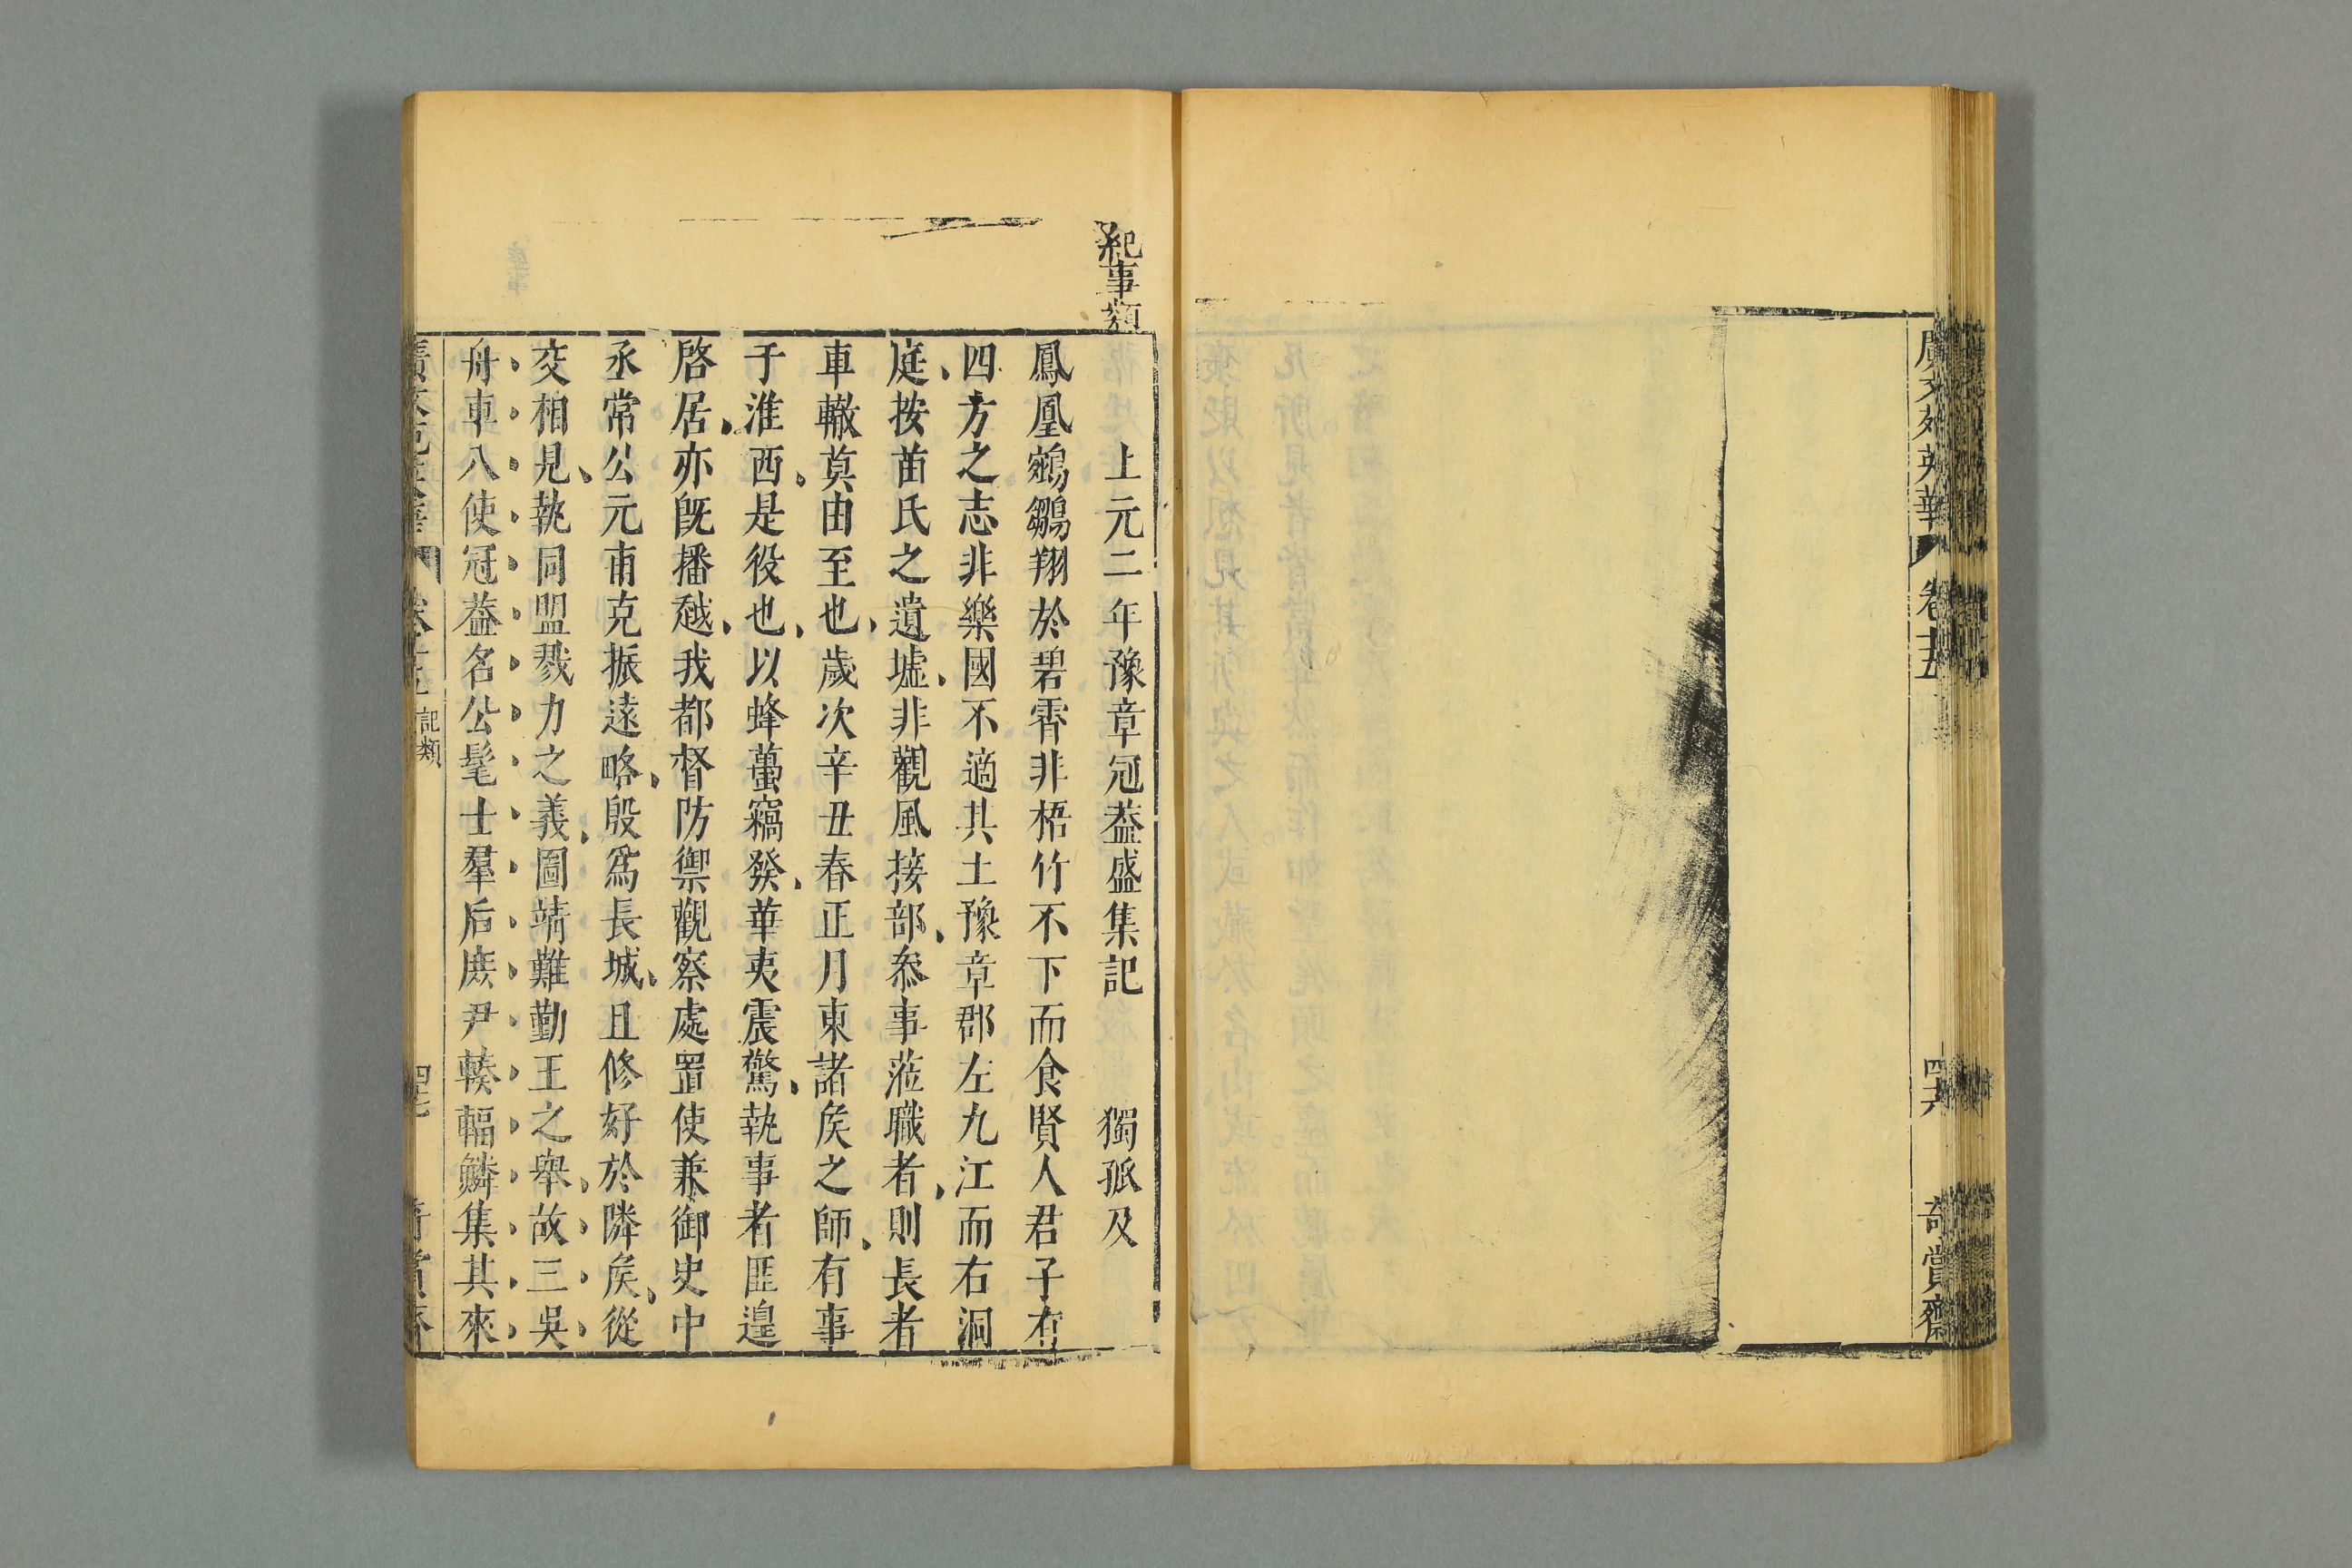 廣文苑英華
卷十五
四六
奇賞齋
紀事類
上元二年豫章冠葢盛集記 獨孤及
鳳凰鵷鶵翔於碧霄非梧竹不下而食賢人君子有
四方之志非樂國不適其土豫章郡左九江而右洞
庭按苗氏之遺墟非觀風接部叅事蒞職者則長者
車轍莫由至也歲次辛丑春正月東諸矦之師有事
于淮西是役也以蜂蠆竊發華夷震驚執事者匪遑
啓居亦旣播越我都督防禦觀察處置使兼御史中
丞常公元甫克振遠略殷爲長城且修好於隣矦從
交相見執同盟戮力之義圖靖難勤王之舉故三吳
舟車八使冠葢名公髦士羣后庶尹輳輻鱗集其來
記類
四七